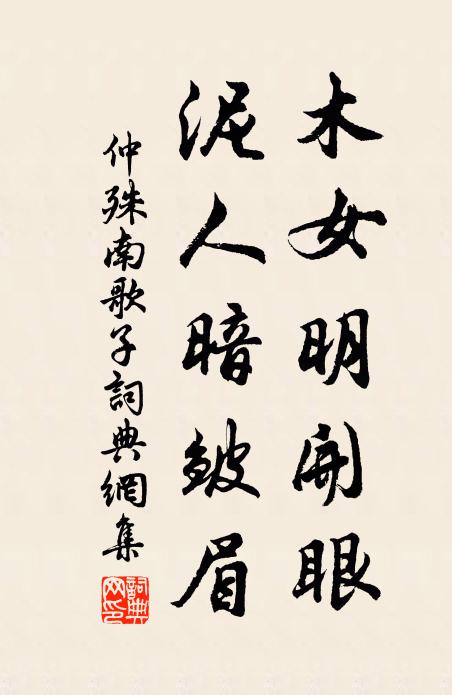 木女明開眼
泥人暗皺眉
仲殊南歌子詞典網集
詞典
网印